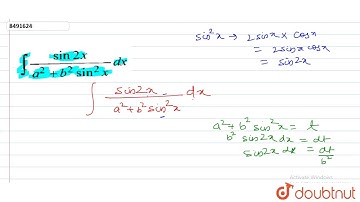 8491624
∫ sin 2x / (a² + b² sin² x) dx
sin²x → 2 sinx × cosx
= 2 sinx cosx
= sin2x
∫ sin2x / (a² + b² sin²x) dx
a² + b² sin²x = t
b² sin2x dx = dt
sin2x dx = dt/b²
Activate Windows
doubtnut